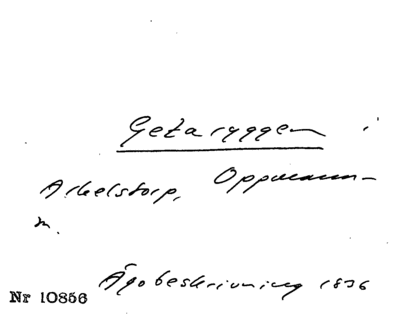 Getaryggen i
Arkelstorp, Oppmanna-
n.
Ägobeskrivning 1836
Nr 10856